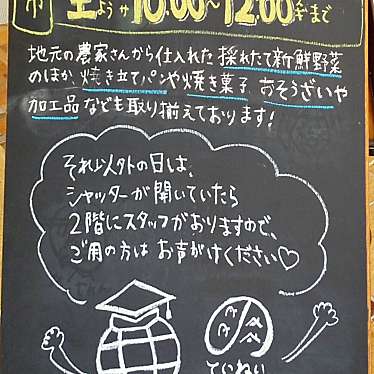 市 土ようび 10:00~12:00まで
地元の農家さんから仕入れた 採れたて新鮮野菜
のほか、焼き立てパンや焼き菓子、おそうざいや
加工品なども取り揃えております!
それ以外の日は、
シャッターが開いていたら
2階にスタッフがおりますので、
ご用の方は お声がけください♡
ていねい